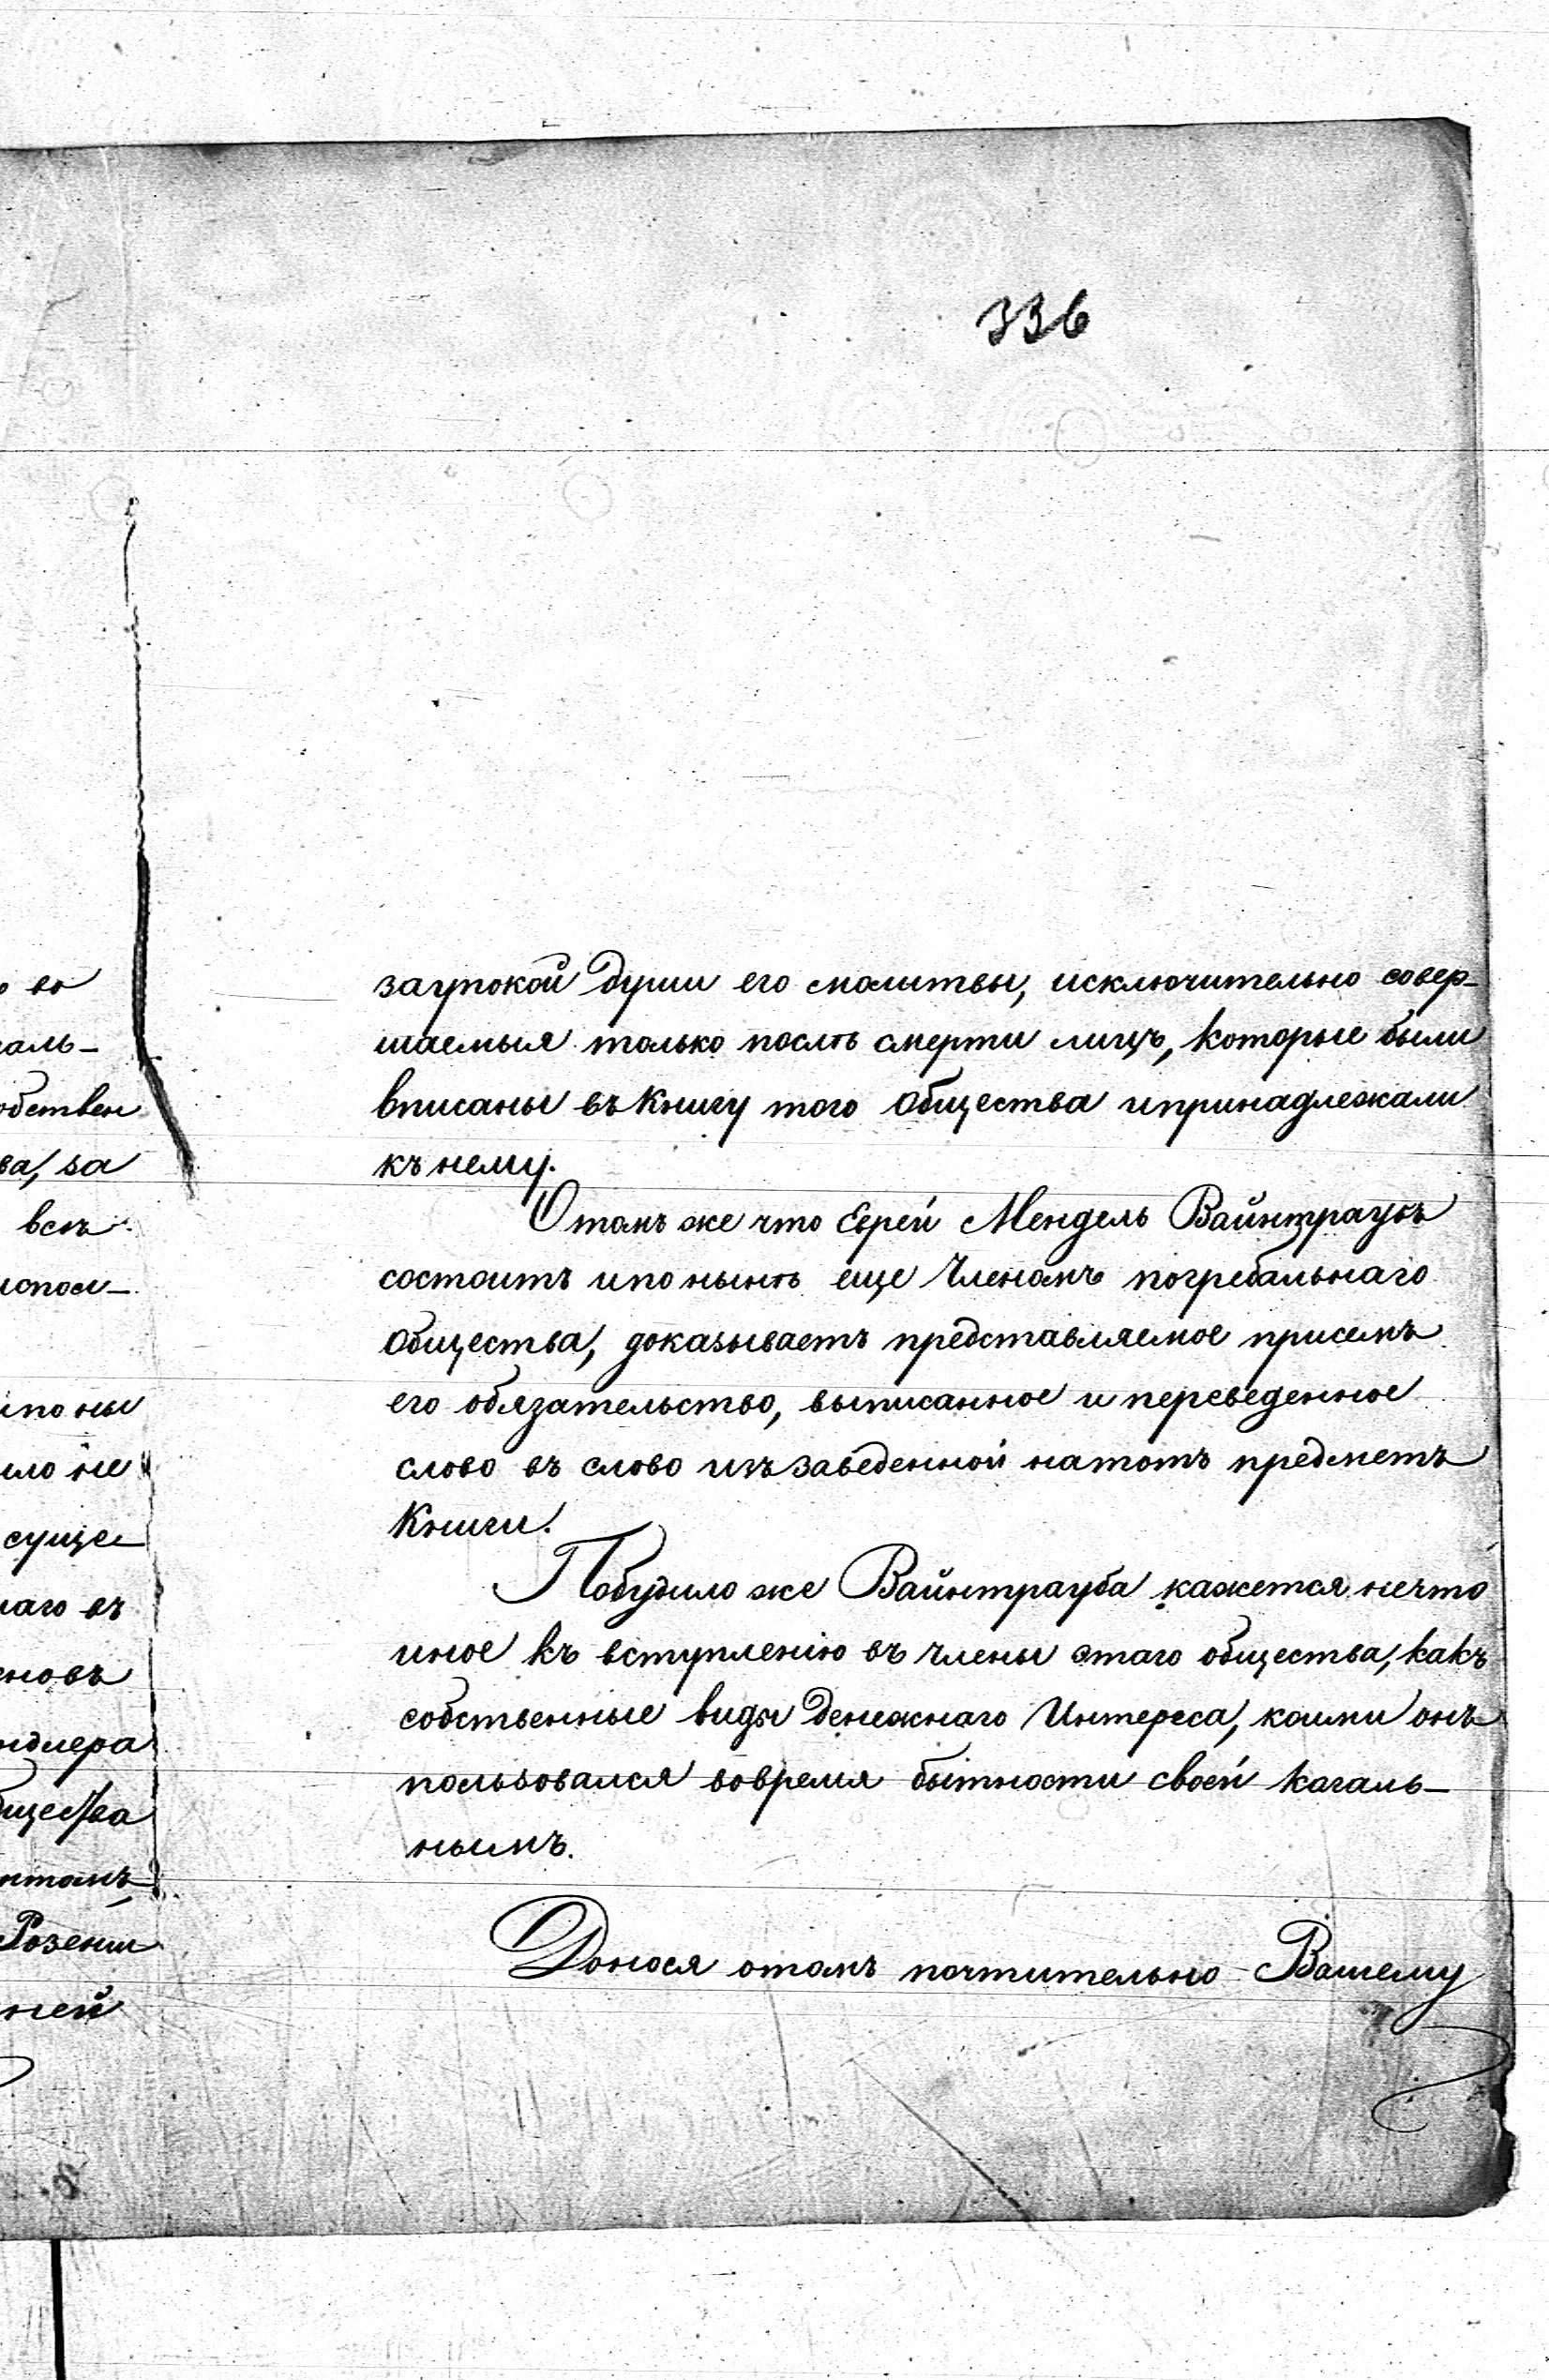 336
заупокой души его молитвы, исключительно совер-
шаемыя только послѣ смерти лицъ, которые были
вписаны въ Книгу того Общества ипринадлежали
къ нему.
Отомъ же что Еврей Мендель Вайнтраубъ
состоитъ ипо нынѣ еще Членомъ погребальнаго
Общества, доказываетъ представляемое присемъ
его обязательство, выписанное и переведенное
слово въ слово изъ заведенной натотъ предметъ
Книги.
Побудило же Вайнтрауба кажется нечто
иное къ вступленію въ члены этаго общества, какъ
собственные виды денежнаго Интереса, коими онъ
пользовался вовремя бытности своей кагаль-
нымъ.
Донося отомъ почтительно Вашему
во
галь-
обствен
ва, за
всѣ
испол-
ипо ны
ило не
суще
наго въ
еновъ
ндлера
бщества
нтомъ
Розенш
ней